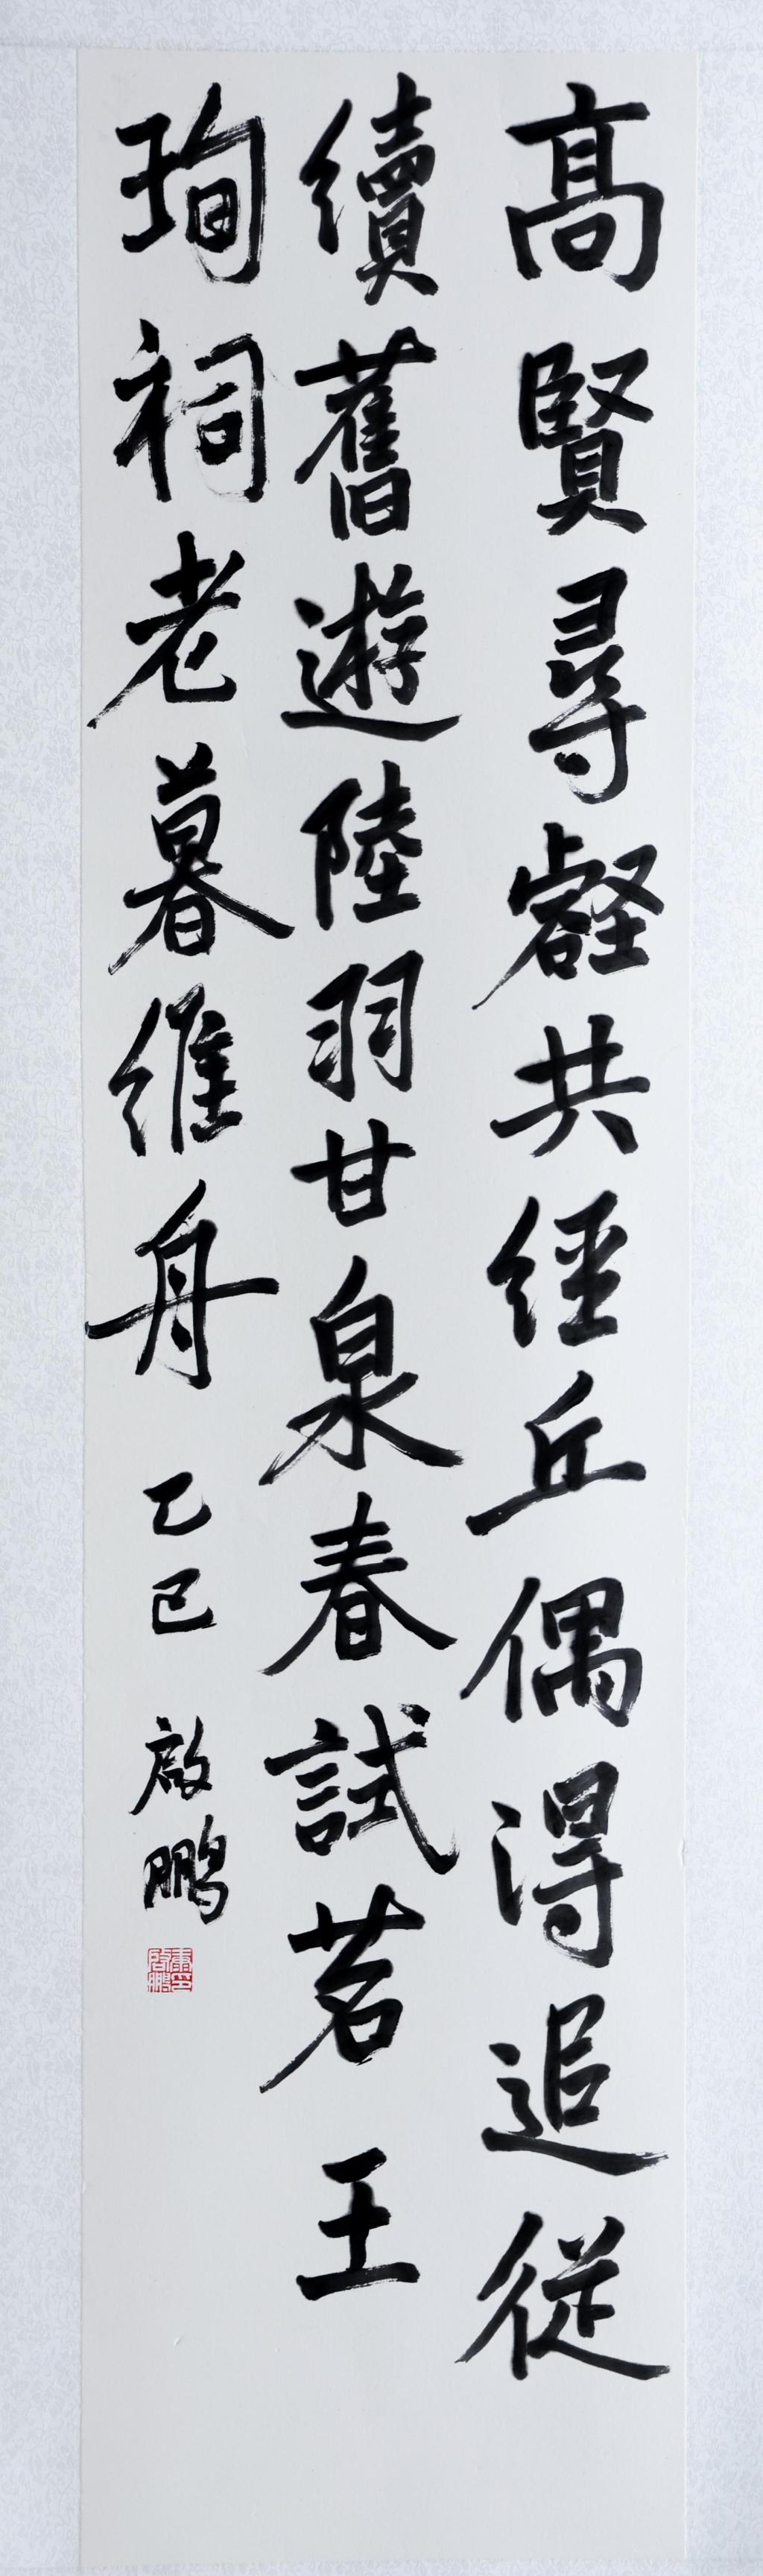 高賢尋壑共經丘偶得追從
續舊遊陸羽甘泉春試茗王
珣祠老暮維舟 乙巳 啟鵬